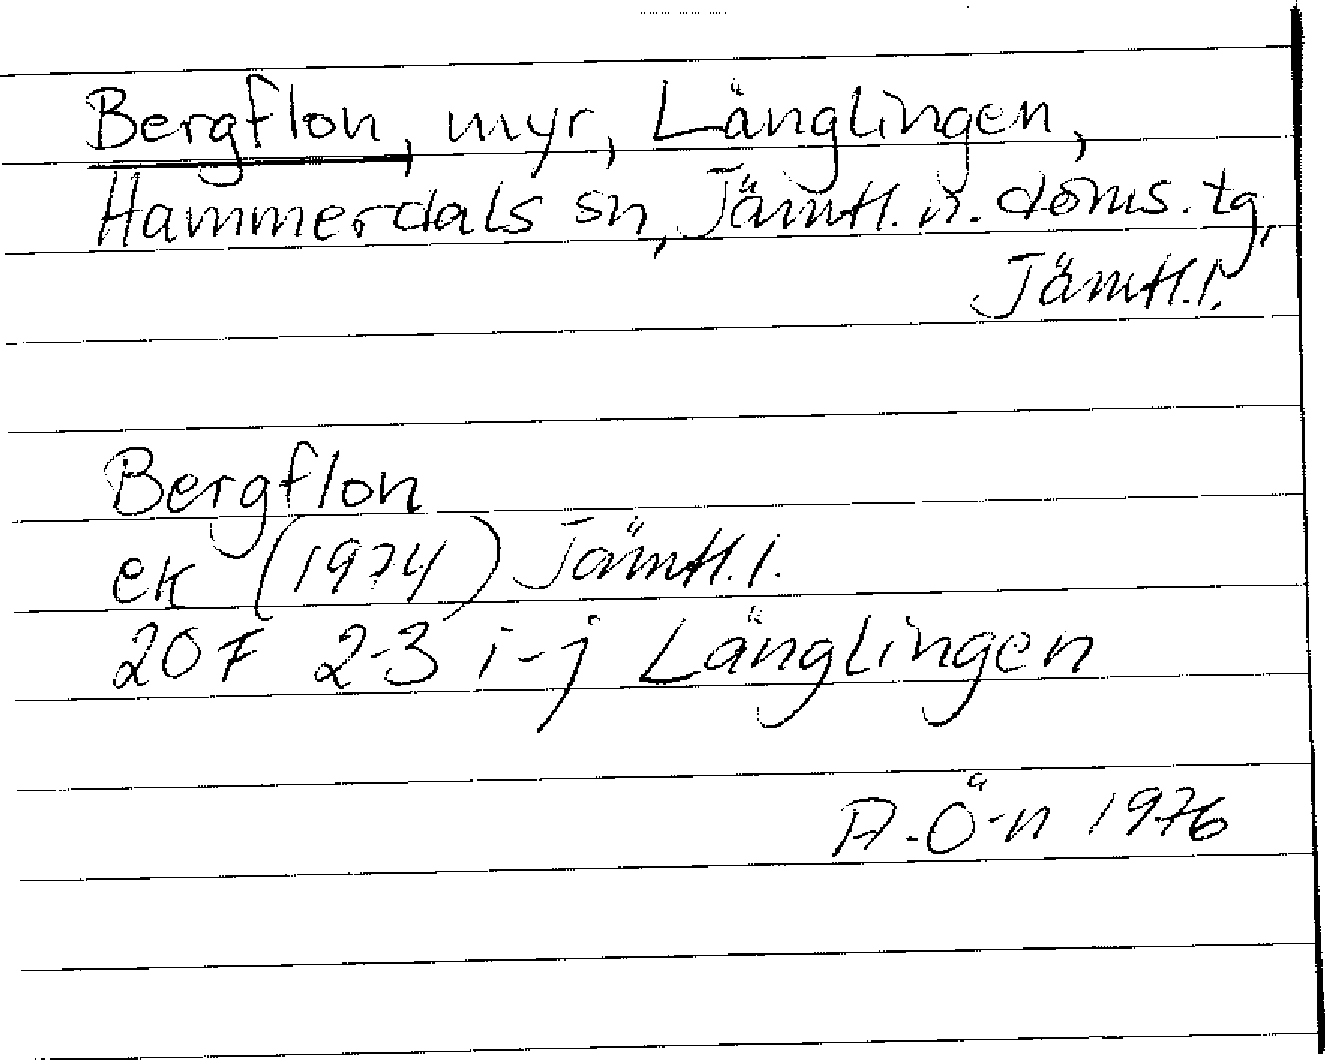 Bergflon, myr, Länglingen,
Hammerdals sn, Jämtl. n. doms. tg,
Jämtl. l.
Bergflon
ek (1974) Jämtl. l.
20 F 2-3 i-j Länglingen
A. Ö-n 1976